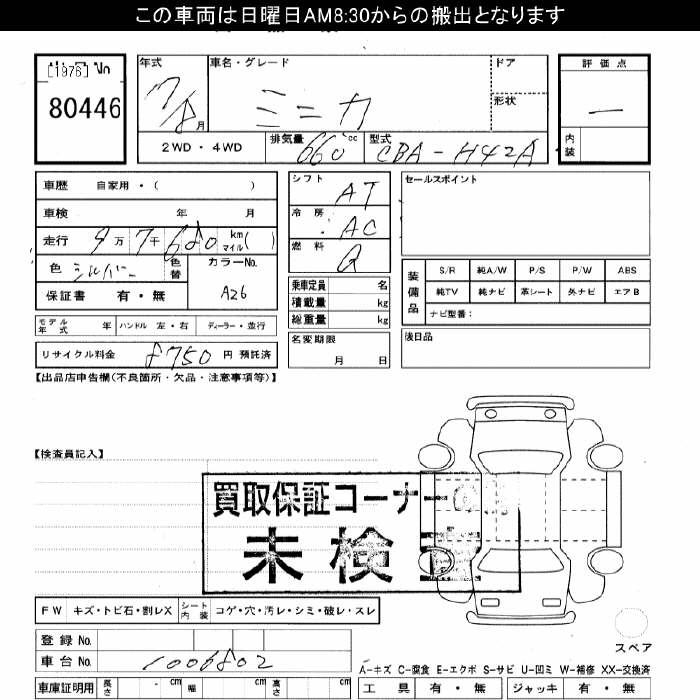 この車両は日曜日AM8:30からの搬出となります
[1976] No
80446
年式
車名・グレード
ドア
評価点
ミニカ
形状
月
一
2WD・4WD
排気量 660 cc
型式 CBA-H42A
内装
車歴 自家用・( )
シフト AT
セールスポイント
車検 年 月
冷房 AC
走行 9万7千680 km マイル( )
燃料 G
色 シルバー 色替
カラーNo. A26
装備品
S/R 純A/W P/S P/W ABS
純TV 純ナビ 革シート 外ナビ エアB
ナビ型番:
保証書 有・無
乗車定員 名
積載量 kg
総重量 kg
モデル年式 年 ハンドル 左・右 ディーラー・並行
後日品
名変期限 月 日
リサイクル料金 8750 円 預託済
【出品店申告欄(不良箇所・欠品・注意事項等)】
【検査員記入】
買取保証コーナー
未検
FW キズ・トビ石・割レX シート内装 コゲ・穴・汚レ・シミ・破レ・スレ
登録No.
スペア
車台No. 1006802
A-キズ C-腐食 E-エクボ S-サビ U-凹ミ W-補修 XX-交換済
車庫証明用 長さ cm 幅 cm 高さ cm
工具 有・無 ジャッキ 有・無